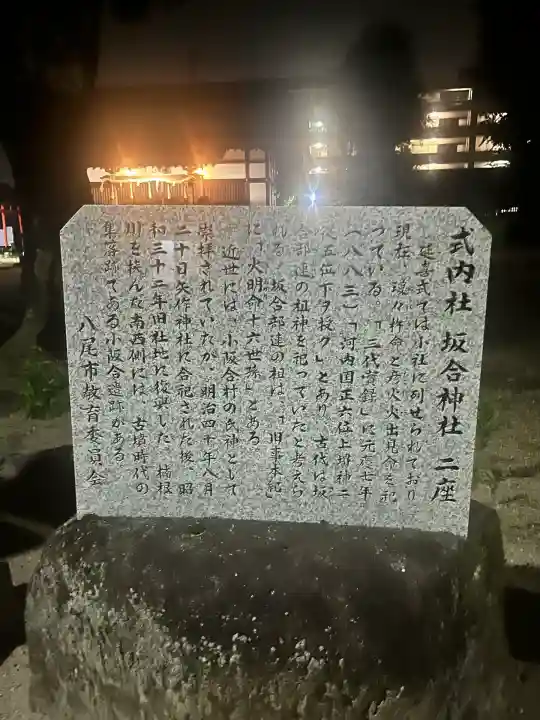 式内社 坂合神社 二座
延喜式では小社に列せられており
現在、瓊々杵命と彦火火出見命を祀
っている。「三代実録」に元慶七年
(八八三)「河内国正六位上 神二
従五位下ヲ授ク」とあり、古代は坂
合部連の祖神を祀っていたと考えら
れる。坂合部連の祖は、「旧事本紀」
に「大明命十六世孫」とある。
近世には、小阪合村の氏神として
崇拝されていたが、明治四十年八月
二十日矢作神社に合祀された後、昭
和三十二年旧社地に復興した。楠根
川を挟んだ南西側には、古墳時代の
集落跡である小阪合遺跡がある。
八尾市教育委員会